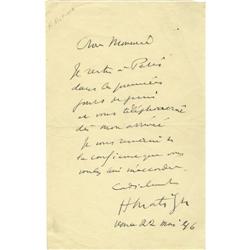 Cher Monsieur
Je rentre à Paris
dans les premiers
jours de juin
et vous téléphonerai
dès mon arrivée
Je vous remercie de
la confiance que vous
voulez bien m'accorder
Cordialement
HMatisse
Vence 22 mai 46